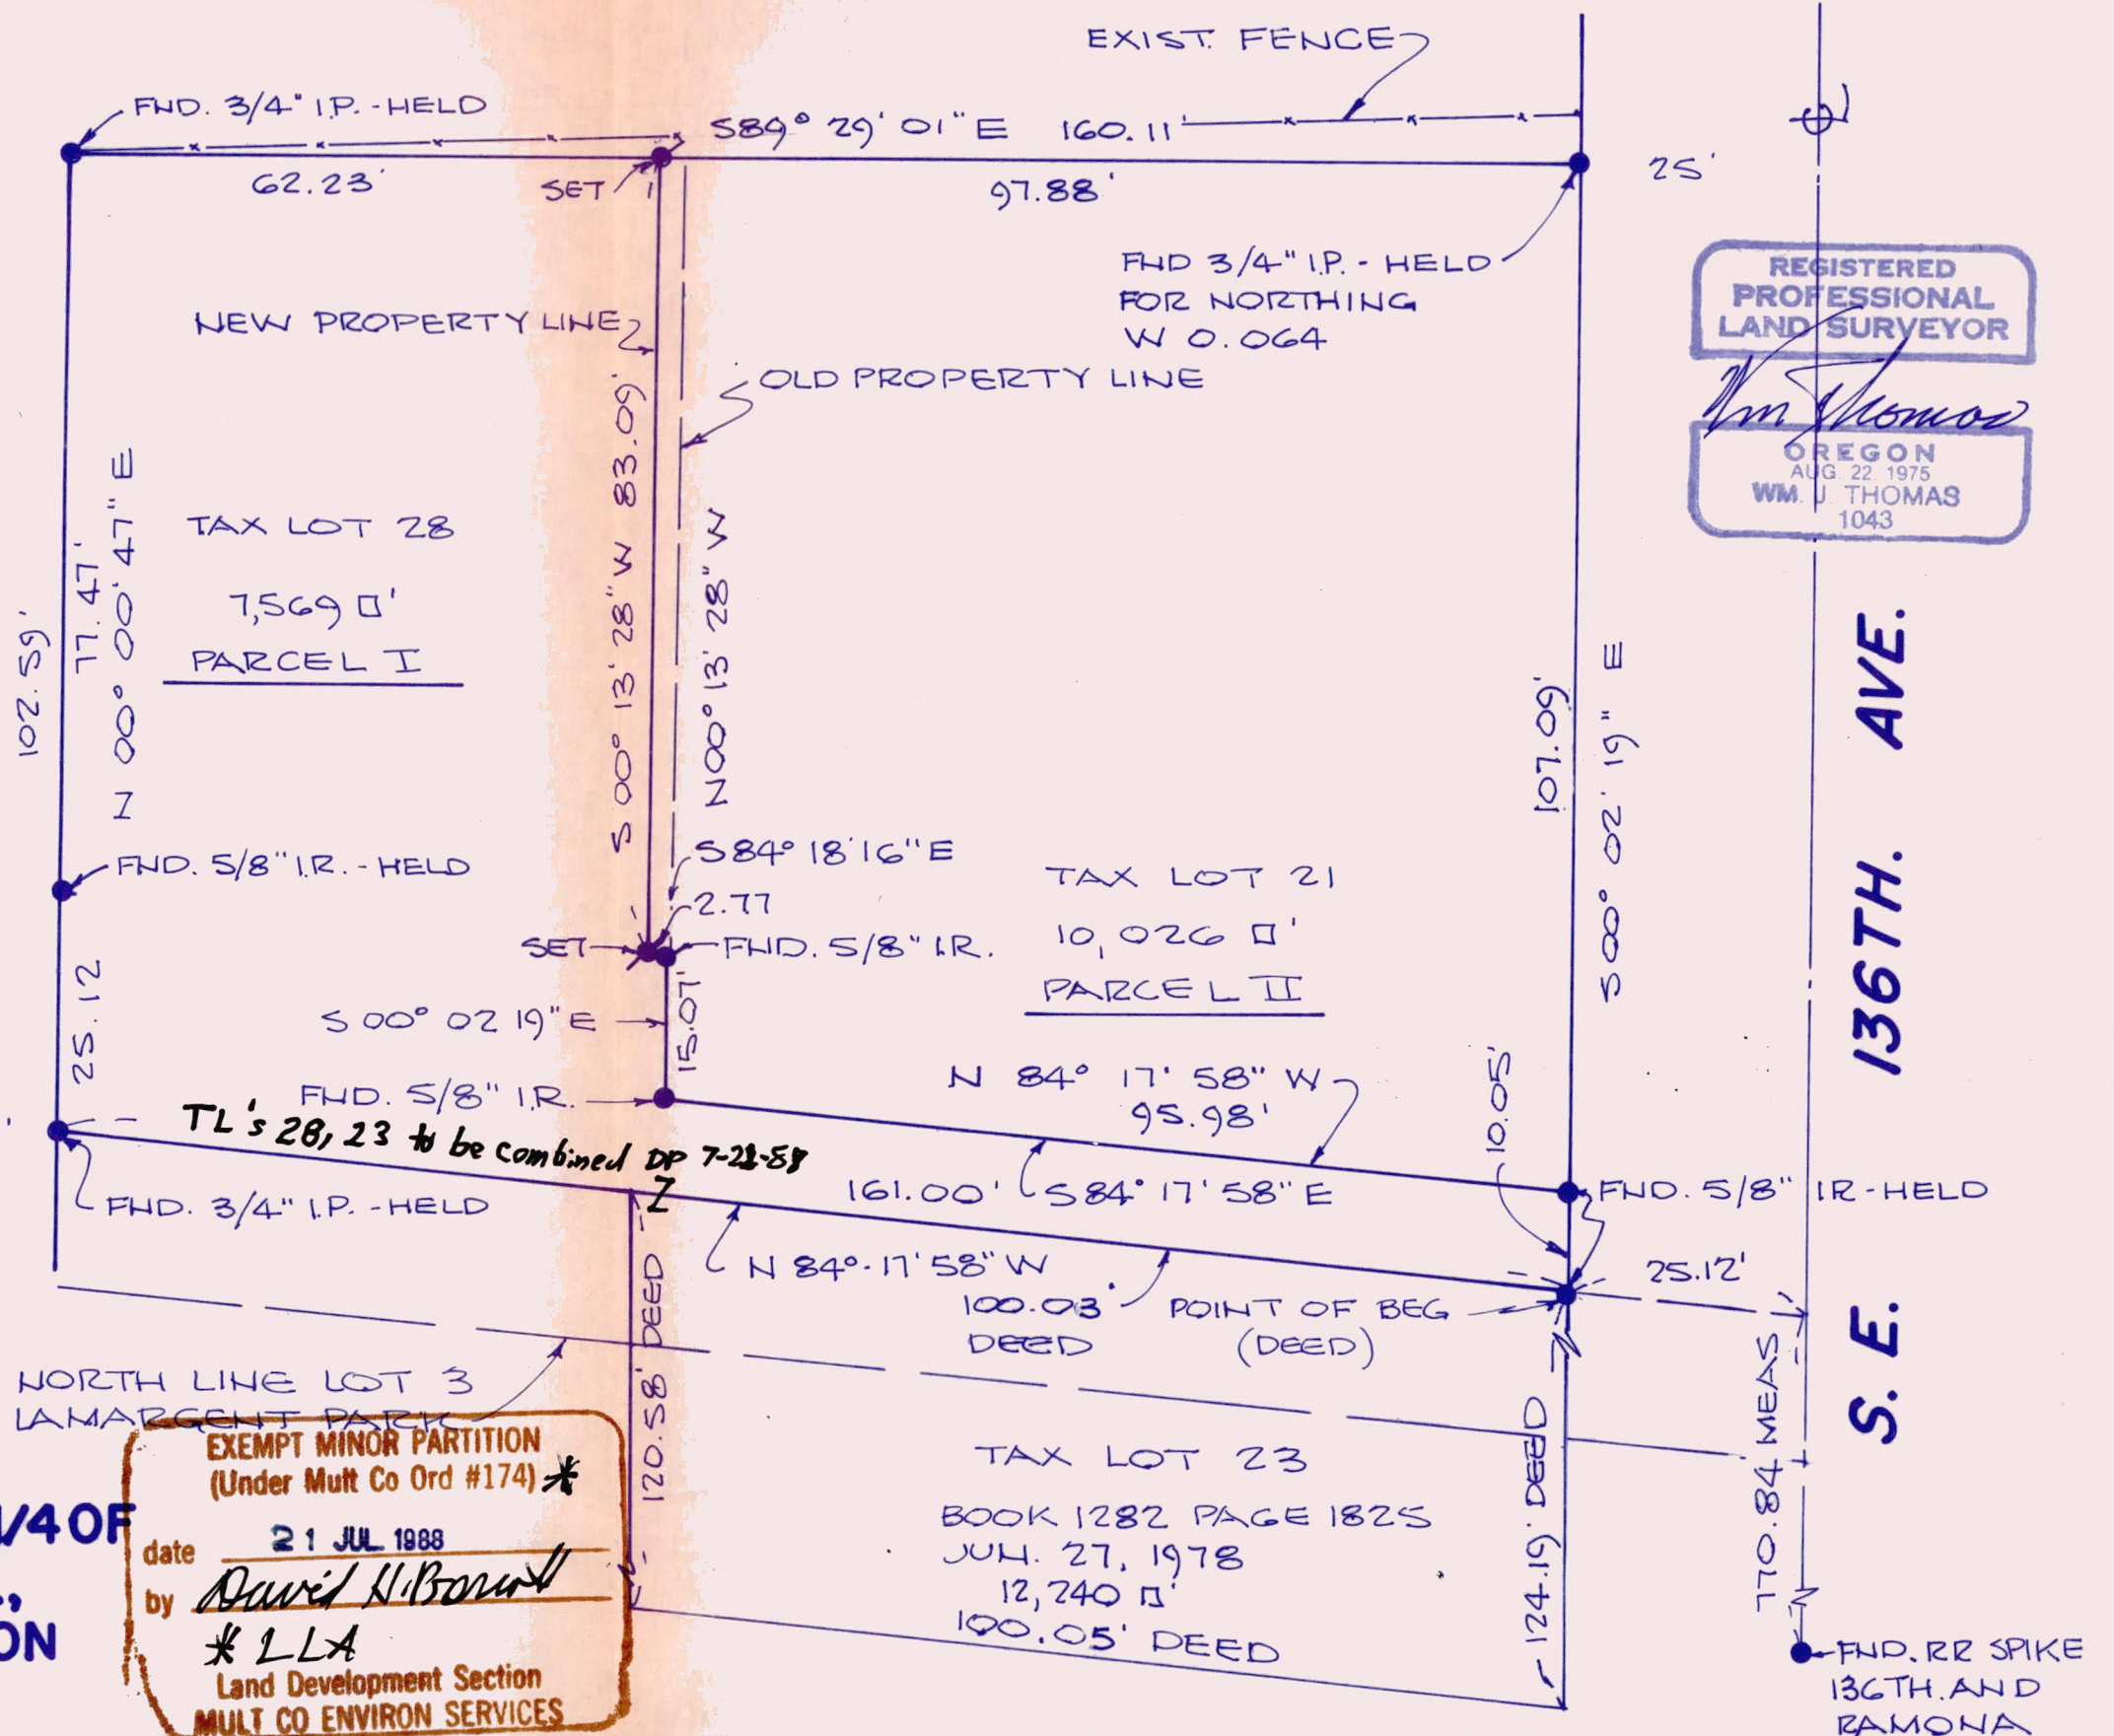 EXIST. FENCE
FND. 3/4" I.P. - HELD
S89° 29' 01" E 160.11'
62.23'
SET
97.88'
25'
FND 3/4" I.P. - HELD
FOR NORTHING
W 0.064
REGISTERED
PROFESSIONAL
LAND SURVEYOR
Wm Thomas
OREGON
AUG. 22 1975
WM. J. THOMAS
1043
NEW PROPERTY LINE
OLD PROPERTY LINE
S 00° 13' 28" W 83.09'
N00° 13' 28" W
102.59'
77.47'
N 00° 00' 47" E
TAX LOT 28
7,569 □'
PARCEL I
107.09'
S00° 02' 19" E
S. E. 136TH. AVE.
FND. 5/8" I.R. - HELD
S84° 18'16" E
2.77
SET
FND. 5/8" I.R.
TAX LOT 21
10,026 □'
PARCEL II
25.12
S 00° 02 19" E
15.07'
FND. 5/8" I.R.
N 84° 17' 58" W
95.98'
10.05'
TL's 28, 23 to be combined DP 7-21-88
Z
FND. 3/4" I.P. - HELD
161.00'
S84° 17' 58" E
FND. 5/8" IR - HELD
N 84° 17' 58" W
100.03'
DEED
POINT OF BEG
(DEED)
25.12'
120.58' DEED
NORTH LINE LOT 3
LAMARGENT PARK
EXEMPT MINOR PARTITION
(Under Mult Co Ord #174) *
date 21 JUL 1988
by
* LLA
Land Development Section
MULT CO ENVIRON SERVICES
1/4 OF
ON
TAX LOT 23
BOOK 1282 PAGE 1825
JUN. 27, 1978
12,240 □'
100.05' DEED
124.19' DEED
770.84 MEAS
FND. RR SPIKE
136TH. AND
RAMONA